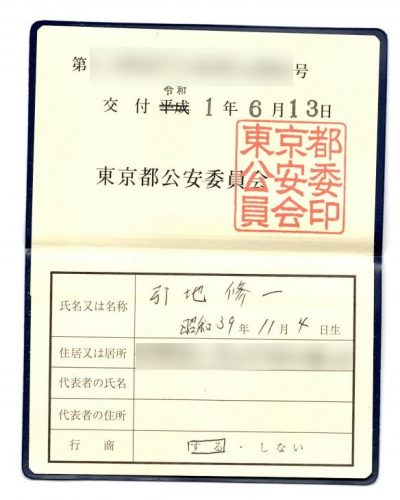 第 号
令和
交付 平成 1年6月13日
東京都公安委員会
東京都
公安委
員会印
氏名又は名称 引地修一
昭和39年11月4日生
住居又は居所
代表者の氏名
代表者の住所
行商 する・しない